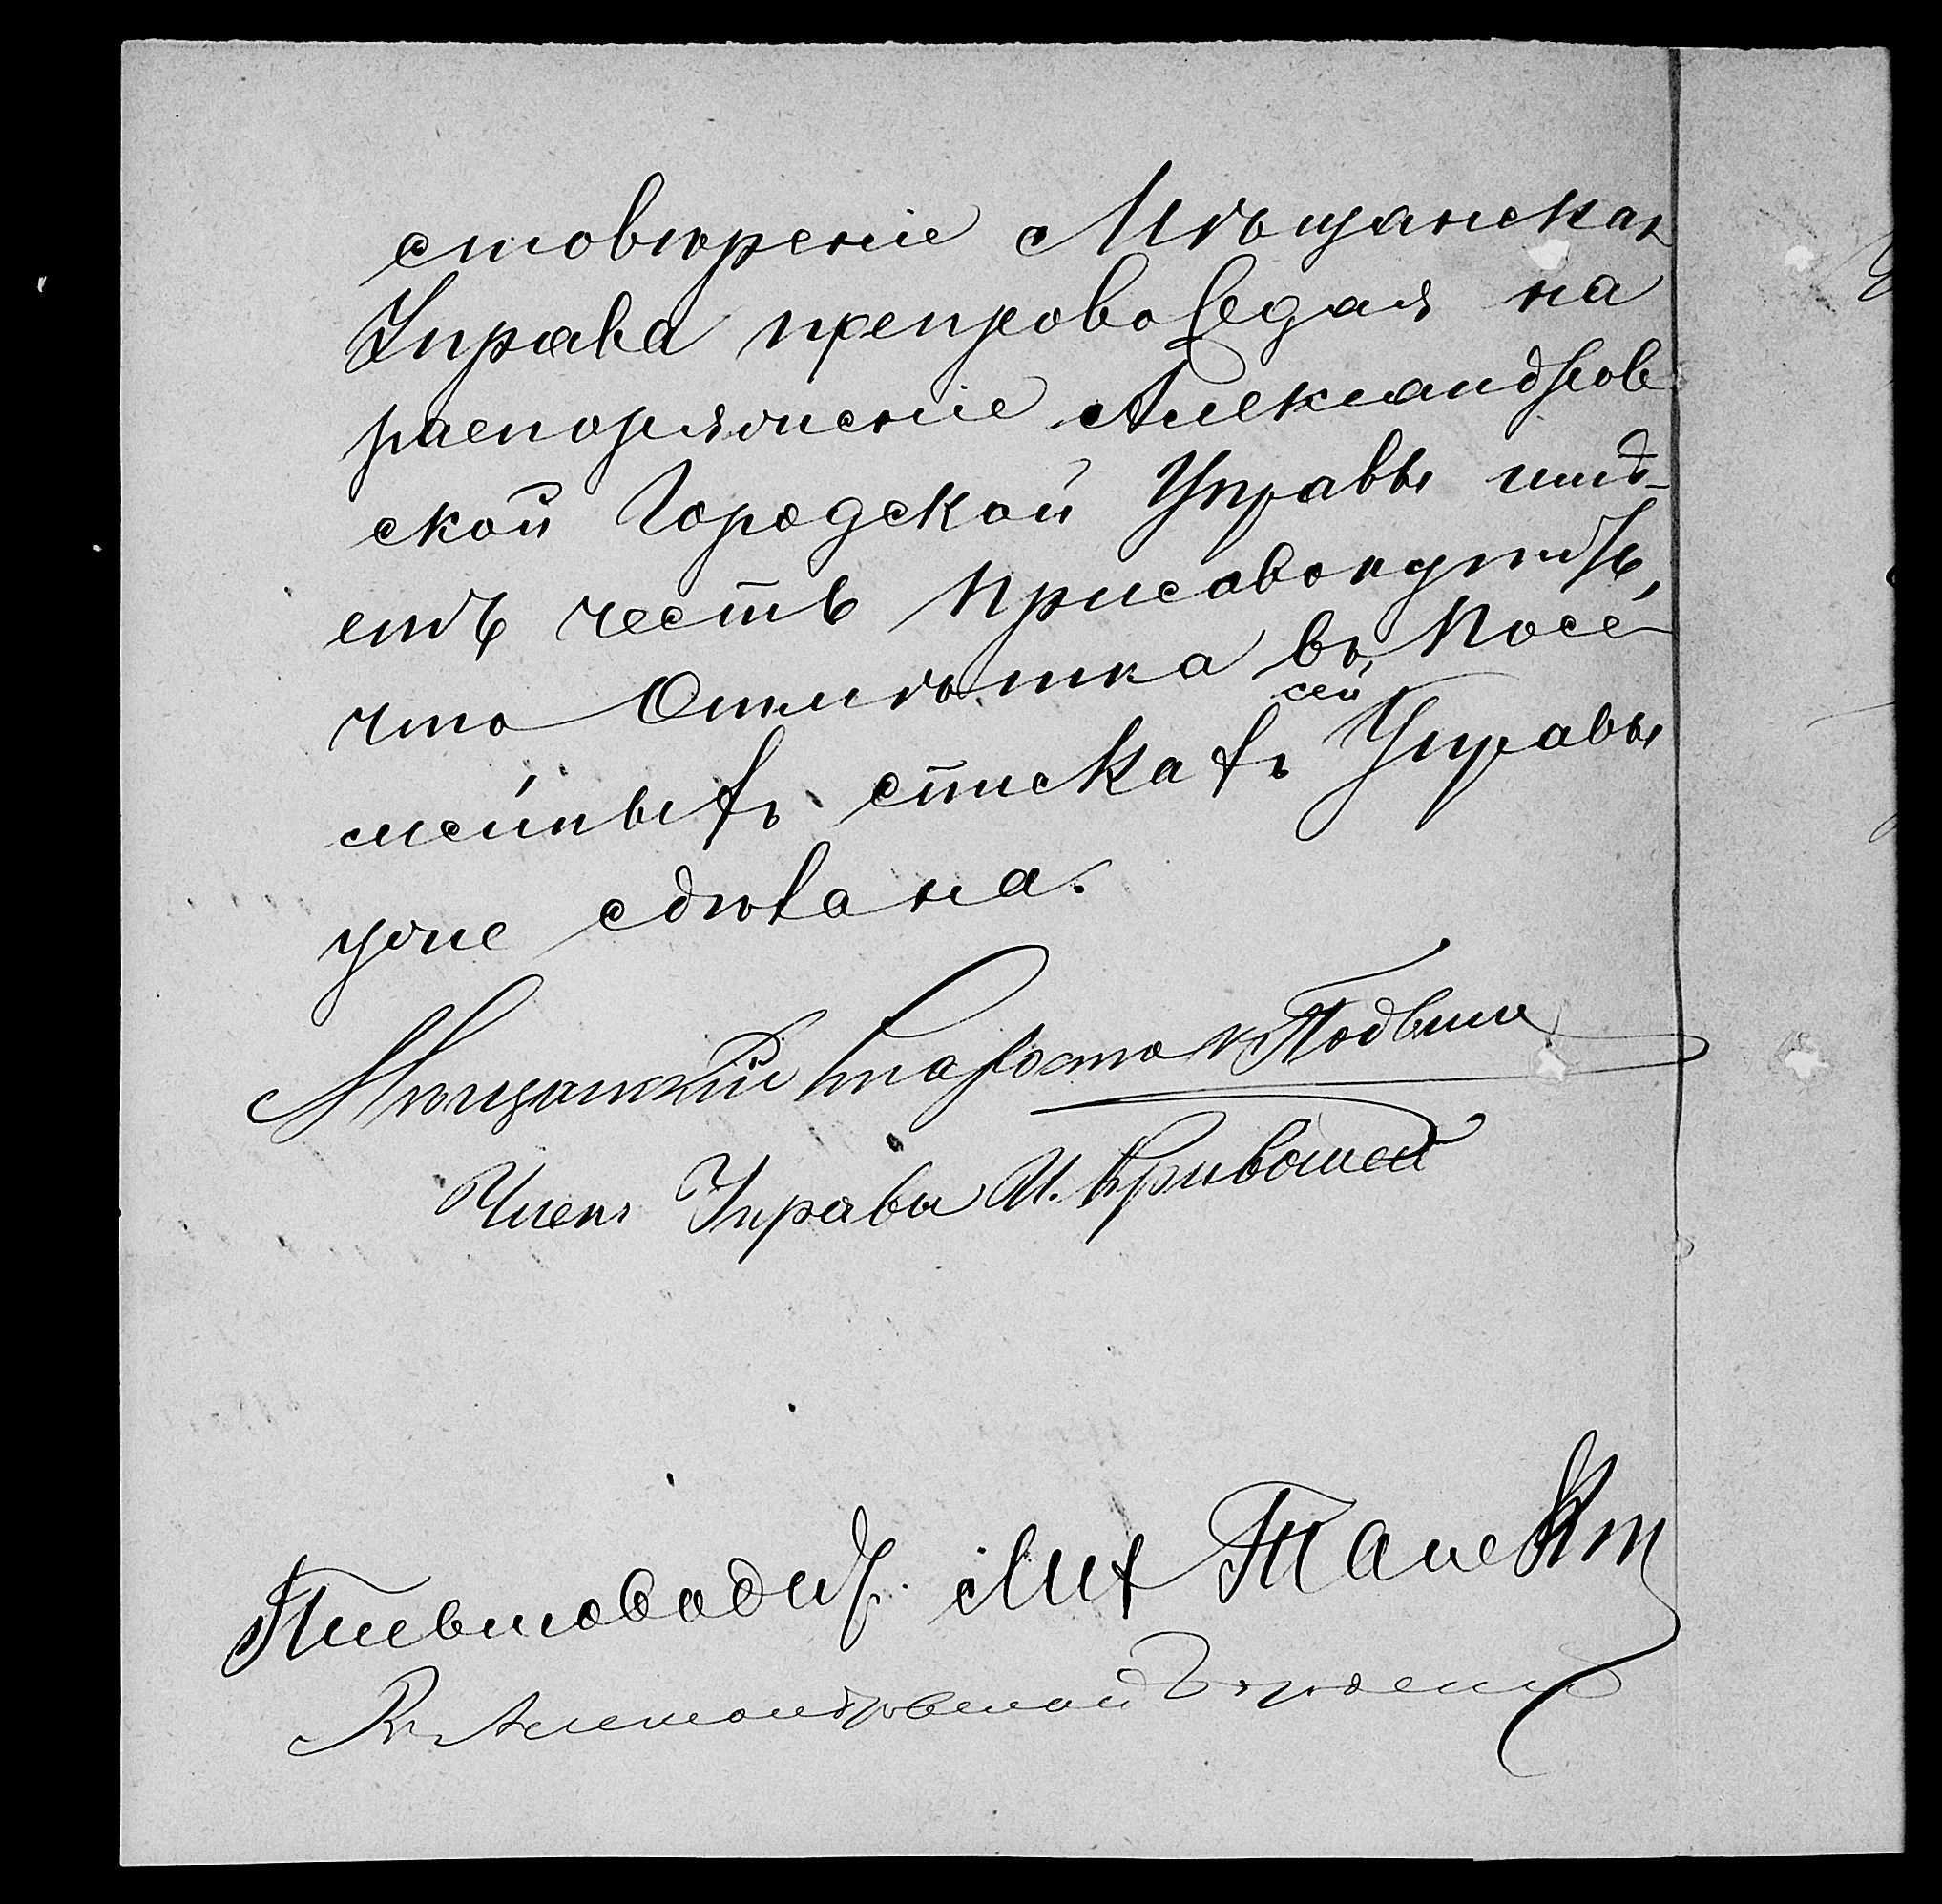 стовѣрение Мѣщанская
Управа препровождая на
распоряжение Александров
ской Городской Управы имѣ-
етъ честь присовокупить,
что Отмѣтка въ посе-
сей
мейныхъ спискахъ Управы
уже сдѣлана.
Мѣщанский Староста
Членъ Управы И. Кривошей
Письмоводит. Мих
Въ Александровской Городской